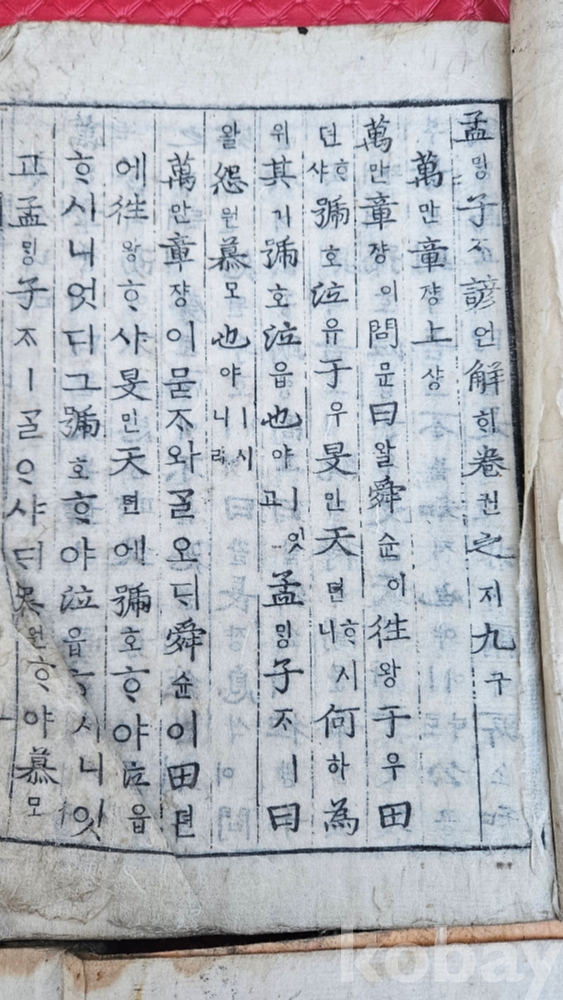 孟밍子ᄌᆞ諺언解ᄒᆡ卷권之지九구
萬만章쟝上샹
萬만章쟝이問문曰왈舜슌이往왕于우田
뎐ᄒᆞ샤號호泣읍于우旻민天텬ᄒᆞ시니何하為
위其기號호泣읍也야ㅣ잇고孟밍子ᄌᆞㅣ曰
왈怨원慕모也야ㅣ시니라
萬만章쟝이묻ᄌᆞ와ᄀᆞᆯ오ᄃᆡ舜슌이田뎐
에往왕ᄒᆞ샤旻민天텬에號호ᄒᆞ야泣읍
ᄒᆞ시니엇디그號호ᄒᆞ야泣읍ᄒᆞ시니잇
고孟밍子ᄌᆞㅣᄀᆞᆯᄋᆞ샤ᄃᆡ怨원ᄒᆞ야慕모
kobay